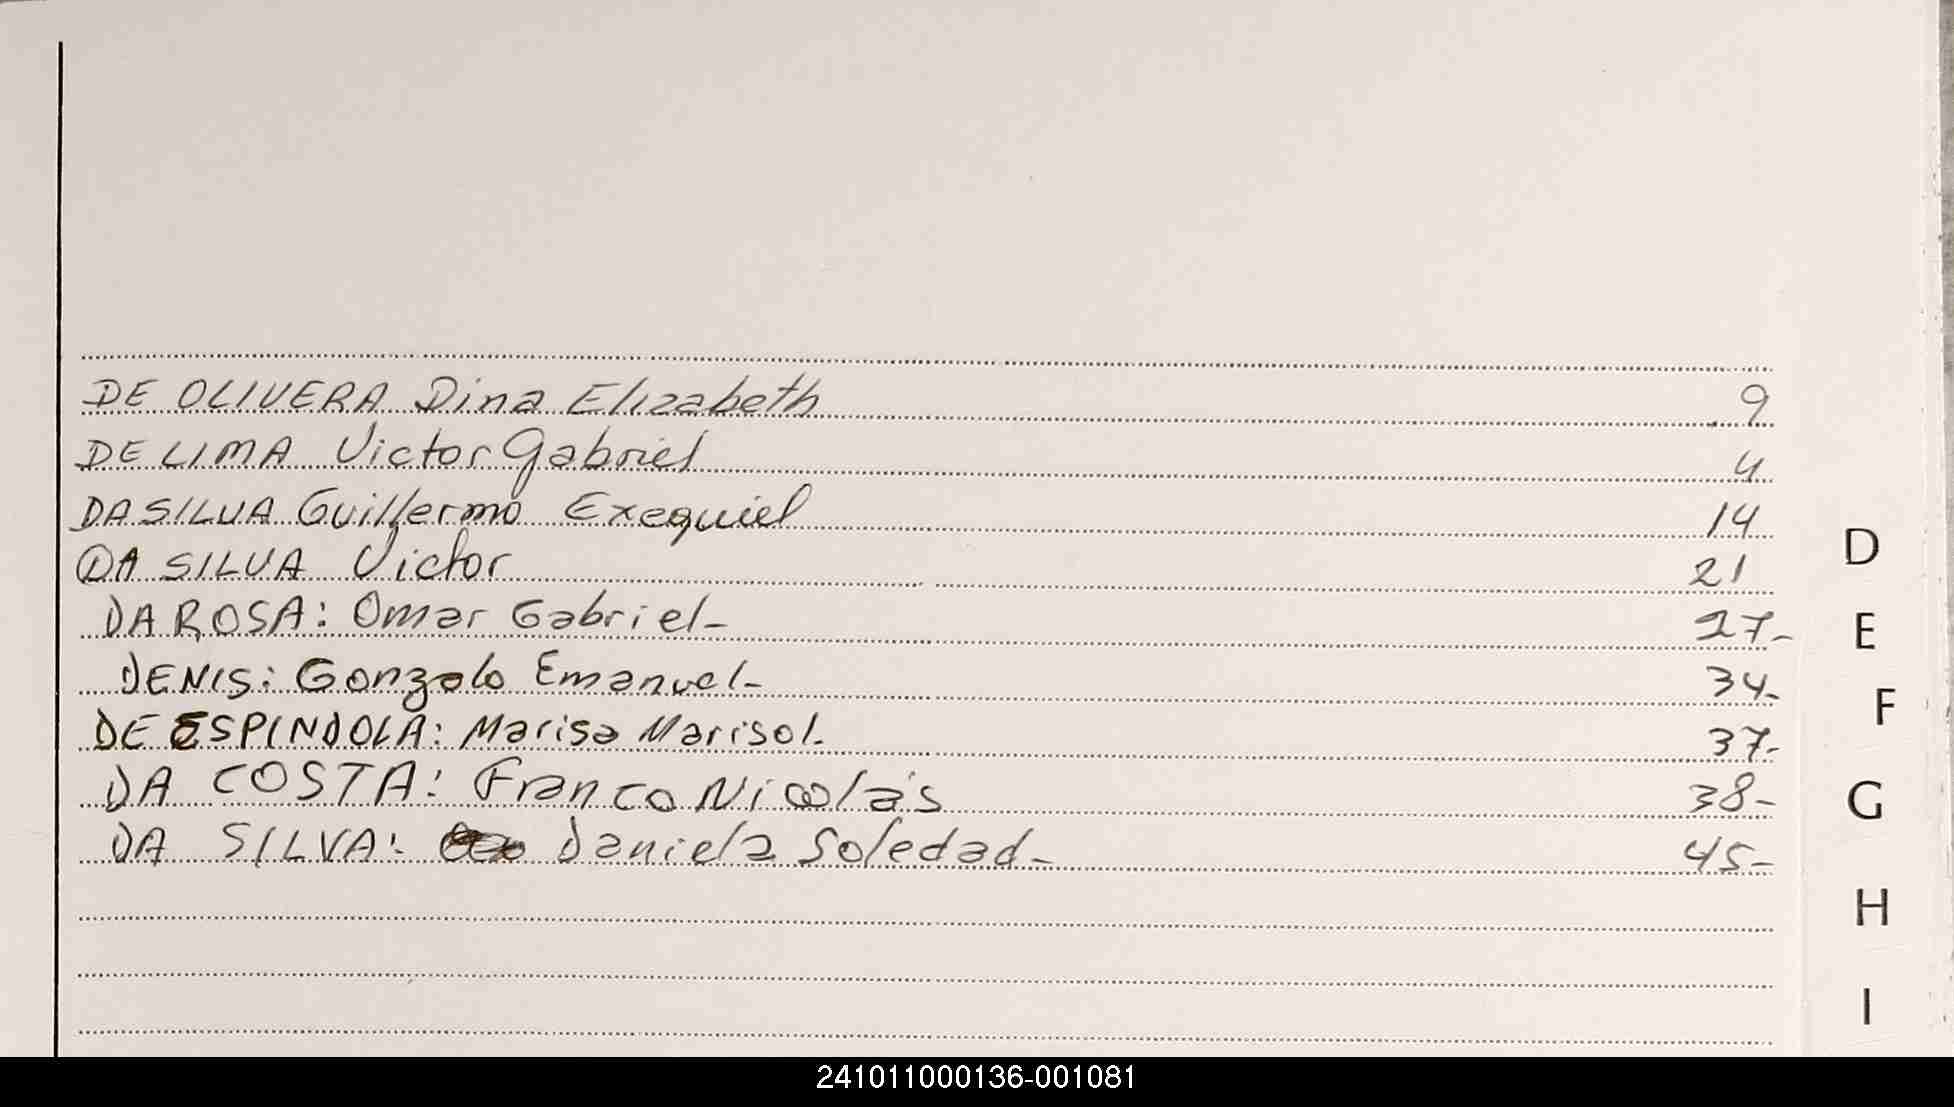 DE OLIVERA Dina Elizabeth 9
DE LIMA Victor Gabriel 4
DA SILVA Guillermo Exequiel 14
DA SILVA Victor 21
DA ROSA: Omar Gabriel- 27-
DENIS: Gonzalo Emanuel- 34-
DE ESPINDOLA: Marisa Marisol. 37-
DA COSTA: Franco Nicolás 38-
DA SILVA: Daniela Soledad- 45-
D
E
F
G
H
I
241011000136-001081